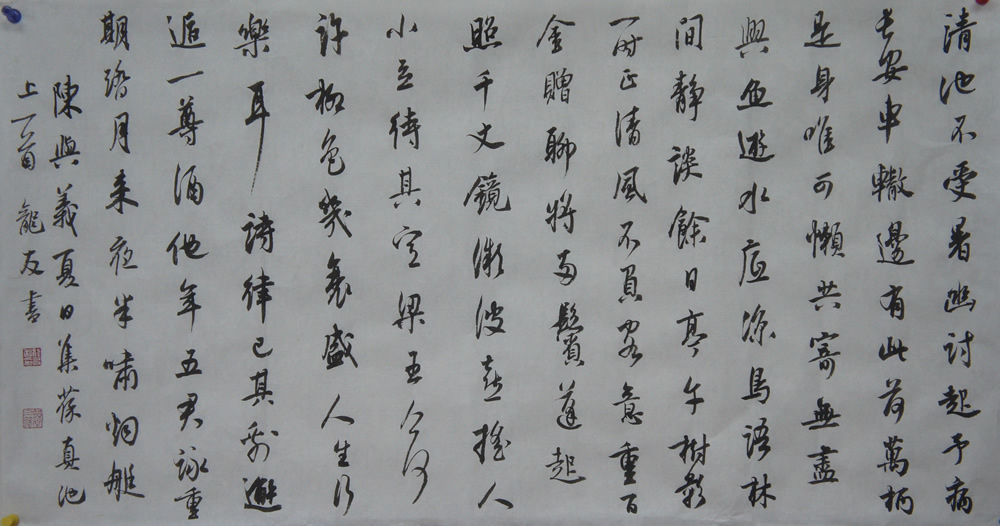 清池不受暑幽討起予病
長安車轍邊有此荷萬柄
是身唯可懶共寄無盡
興魚遊水底涼鳥語林
間靜談餘日亭午樹影
一時正清風不負客意重百
金贈聊將兩鬢蓬起
照千丈鏡微波喜搖人
小立待其定梁王今何
許柳色幾衰盛人生行
樂耳詩律已其剩邂
逅一尊酒他年五君詠重
期踏月來夜半嘯烟艇
陳與義夏日集葆真池
上一首龍友書